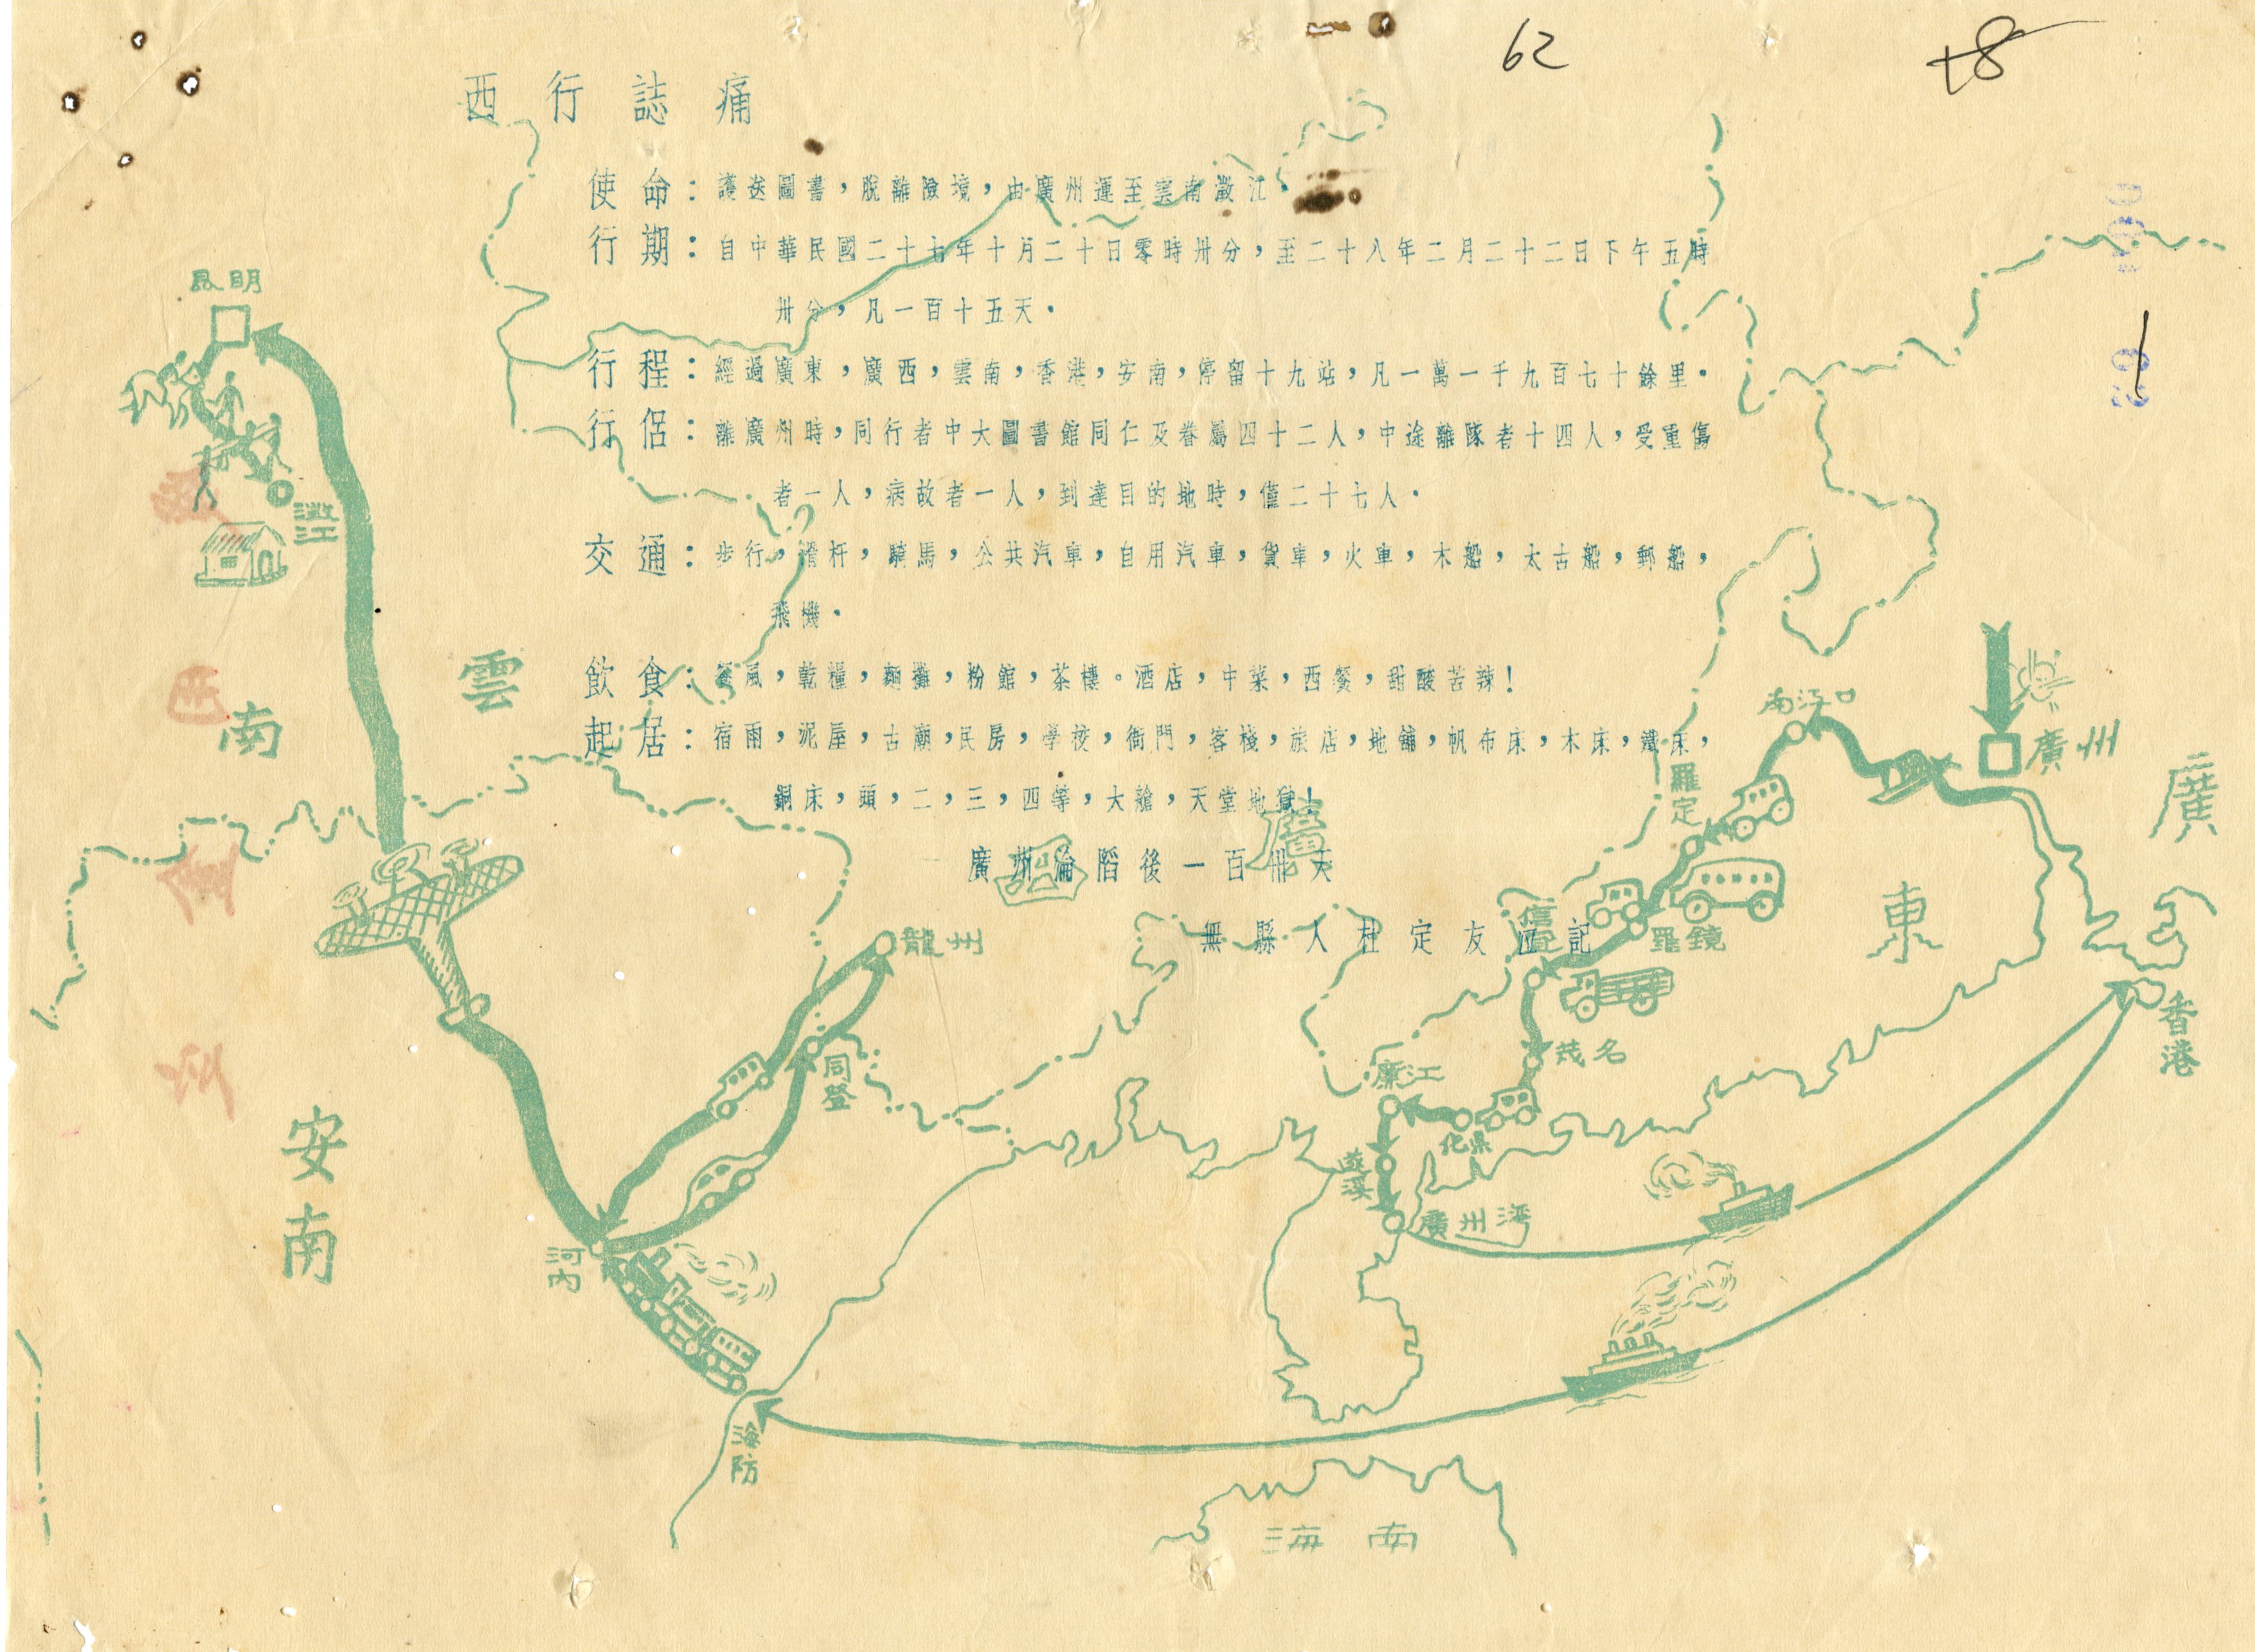 62
西行誌痛
使命：護送圖書，脫離險境，由廣州運至雲南澂江。
行期：自中華民國二十七年十月二十日零時卅分，至二十八年二月二十二日下午五時
卅分，凡一百十五天。
行程：經過廣東，廣西，雲南，香港，安南，停留十九站，凡一萬一千九百七十餘里。
行侶：離廣州時，同行者中大圖書館同仁及眷屬四十二人，中途離隊者十四人，受重傷
者一人，病故者一人，到達目的地時，僅二十七人。
交通：步行，滑杆，騎馬，公共汽車，自用汽車，貨車，火車，木船，太古船，郵船，
飛機。
飲食：餐風，乾糧，麵攤，粉館，茶樓。酒店，中菜，西餐，甜酸苦辣！
起居：宿雨，泥屋，古廟，民房，學校，衙門，客棧，旅店，地舖，帆布床，木床，鐵床，
銅床，頭，二，三，四等，大艙，天堂地獄！
廣州淪陷後一百卅天
無縣人杜定友泣記
昆明
澂江
雲
南
安
南
龍州
同登
河內
海防
廣
西
南江口
羅定
羅鏡
信宜
茂名
化県
廉江
遂溪
廣州湾
廣州
廣
東
香港
海南